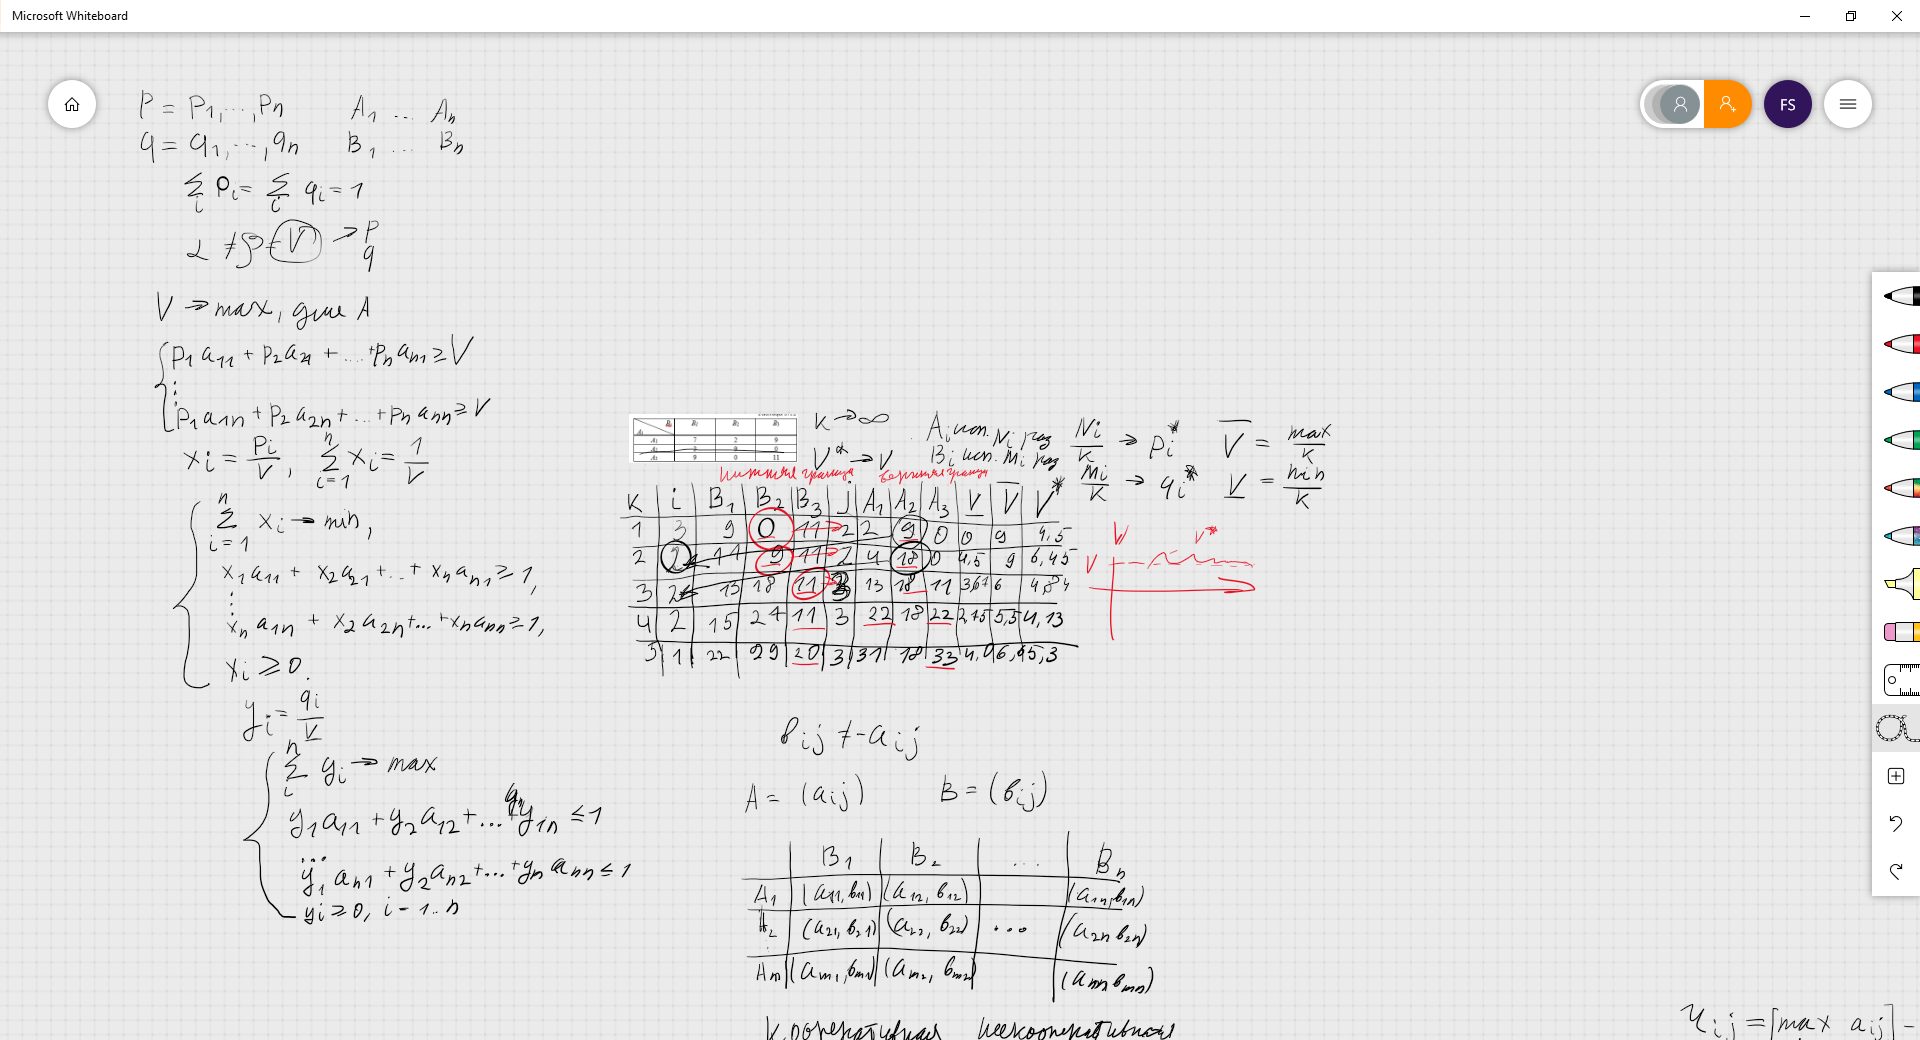 Microsoft Whiteboard
FS
P = P₁, ..., Pn A₁ ... An
q = q₁, ..., qn B₁ ... Bn
∑i Pi = ∑i qi = 1
V → max, для A
P₁a₁₁ + P₂a₂₁ + ... + Pn an₁ ≥ V
⋮
P₁a₁n + P₂a₂n + ... + Pn ann ≥ V
xi = Pi/V, ∑(i=1..n) xi = 1/V
∑(i=1..n) xi → min,
x₁a₁₁ + x₂a₂₁ + ... + xn an₁ ≥ 1,
⋮
xn a₁n + x₂a₂n + ... + xn ann ≥ 1,
xi ≥ 0.
yi = qi/V
∑(i..n) yi → max
y₁a₁₁ + y₂a₁₂ + ... + y₁n ≤ 1
...
y₁an₁ + y₂an₂ + ... + yn ann ≤ 1
yi ≥ 0, i - 1..n
B₁ B₂ B₃
A₁ 7 2 9
A₃ 9 0 11
K → ∞
V* → V
Ai исп. Ni раз Ni/K → pi* V̅ = max/K
Bi исп. Mi раз mi/K → qi* V̲ = min/K
нижняя граница верхняя граница
K i B₁ B₂ B₃ j A₁ A₂ A₃ V̲ V̅ V*
1 3 9 0 11 2 2 9 0 0 9 4,5
2 2 11 9 11 2 4 18 0 4,5 9 6,45
3 2 13 18 11 3 13 18 11 3,67 6
4 2 15 24 11 3 22 18 22 2,75 5,5 4,13
5 1 22 29 20 3 31 18 33 5,3
V V*
V
вij ≠ -aij
A = (aij) B = (вij)
B₁ B₂ ... Bn
A₁ (a₁₁, в₁₁) (a₁₂, в₁₂) (a₁n, в₁n)
A₂ (a₂₁, в₂₁) (a₂₂, в₂₂) ... (a₂n в₂n)
Am (am₁, вm₁) (am₂, вm₂) (amn вmn)
Кооперативная некооперативная
rij = [max aij] -